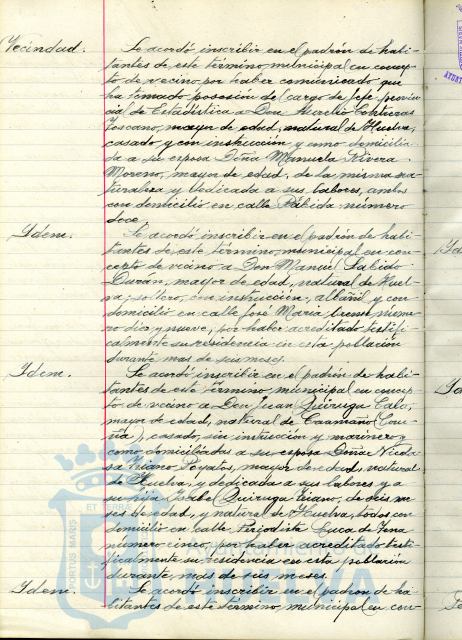 Vecindad. Se acordó inscribir en el padrón de habi-
tantes de este término municipal en concep-
to de vecino, por haber comunicado que
ha tomado posesión del cargo de Jefe provin-
cial de Estadística a Don Aurelio Contreras
Toscano, mayor de edad, natural de Huelva,
casado y con instrucción y como domicilia-
da a su esposa Doña Manuela Rivera
Moreno, mayor de edad, de la misma na-
turaleza y dedicada a sus labores, ambos
con domicilio en calle Rábida número
doce.
Idem. Se acordó inscribir en el padrón de habi-
tantes de este término municipal en con-
cepto de vecino a Don Manuel Salido
Durán, mayor de edad, natural de Huel-
va, soltero, con instrucción, albañil y con
domicilio en calle José María núme-
ro diez y nueve, por haber acreditado testifi-
calmente su residencia en esta población
durante mas de seis meses.
Idem. Se acordó inscribir en el padrón de habi-
tantes de este término municipal en concep-
to de vecino a Don Juan Quiruga Calo,
mayor de edad, natural de Caamaño (Coru-
ña), casado, sin instrucción y marinero y
como domiciliadas a su esposa Doña Nicola-
sa Triano Poyatos, mayor de edad, natural
de Huelva, y dedicada a sus labores y a
su hija Quiruga Triano, de seis me-
ses de edad, y natural de Huelva, todos con
domicilio en calle Periodista Luca de Tena
número cinco, por haber acreditado testi-
ficalmente su residencia en esta población
durante mas de seis meses.
Idem. Se acordó inscribir en el padrón de ha-
bitantes de este término municipal en con-
PORTUS MARIS
ET TERRAE
Ayuntamiento de
HUELVA